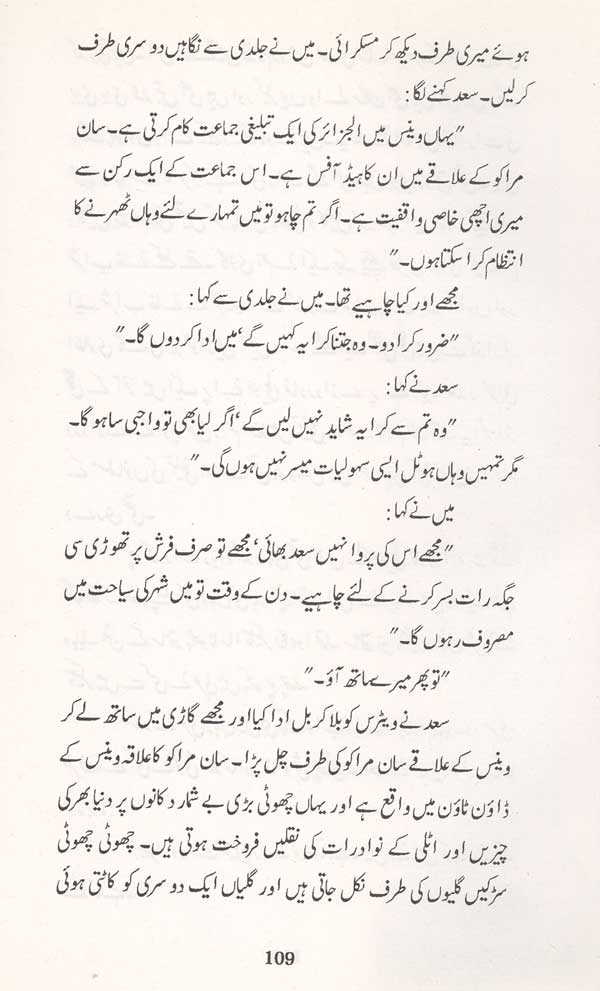 ہوئے میری طرف دیکھ کر مسکرائی۔ میں نے جلدی سے نگاہیں دوسری طرف
کرلیں۔ سعد کہنے لگا:
"یہاں وینس میں الجزائر کی ایک تبلیغی جماعت کام کرتی ہے۔ سان
مراکو کے علاقے میں ان کا ہیڈ آفس ہے۔ اس جماعت کے ایک رکن سے
میری اچھی خاصی واقفیت ہے۔ اگر تم چاہو تو میں تمہارے لئے وہاں ٹھہرنے کا
انتظام کرا سکتا ہوں۔"
مجھے اور کیا چاہیے تھا۔ میں نے جلدی سے کہا:
"ضرور کرا دو۔ وہ جتنا کرایہ کہیں گے' میں ادا کر دوں گا۔"
سعد نے کہا:
"وہ تم سے کرایہ شاید نہیں لیں گے' اگر لیا بھی تو واجبی سا ہو گا۔
مگر تمہیں وہاں ہوٹل ایسی سہولیات میسر نہیں ہوں گی۔"
میں نے کہا:
"مجھے اس کی پروا نہیں سعد بھائی' مجھے تو صرف فرش پر تھوڑی سی
جگہ رات بسر کرنے کے لئے چاہیے۔ دن کے وقت تو میں شہر کی سیاحت میں
مصروف رہوں گا۔"
"تو پھر میرے ساتھ آؤ۔"
سعد نے ویٹرس کو بلا کر بل ادا کیا اور مجھے گاڑی میں ساتھ لے کر
وینس کے علاقے سان مراکو کی طرف چل پڑا۔ سان مراکو کا علاقہ وینس کے
ڈاؤن ٹاؤن میں واقع ہے اور یہاں چھوٹی بڑی بے شمار دکانوں پر دنیا بھر کی
چیزیں اور اٹلی کے نوادرات کی نقلیں فروخت ہوتی ہیں۔ چھوٹی چھوٹی
سڑکیں گلیوں کی طرف نکل جاتی ہیں اور گلیاں ایک دوسری کو کاٹتی ہوئی
109